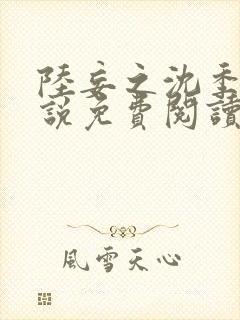 陸妄之沈季
說免費閱讀
風雪天心